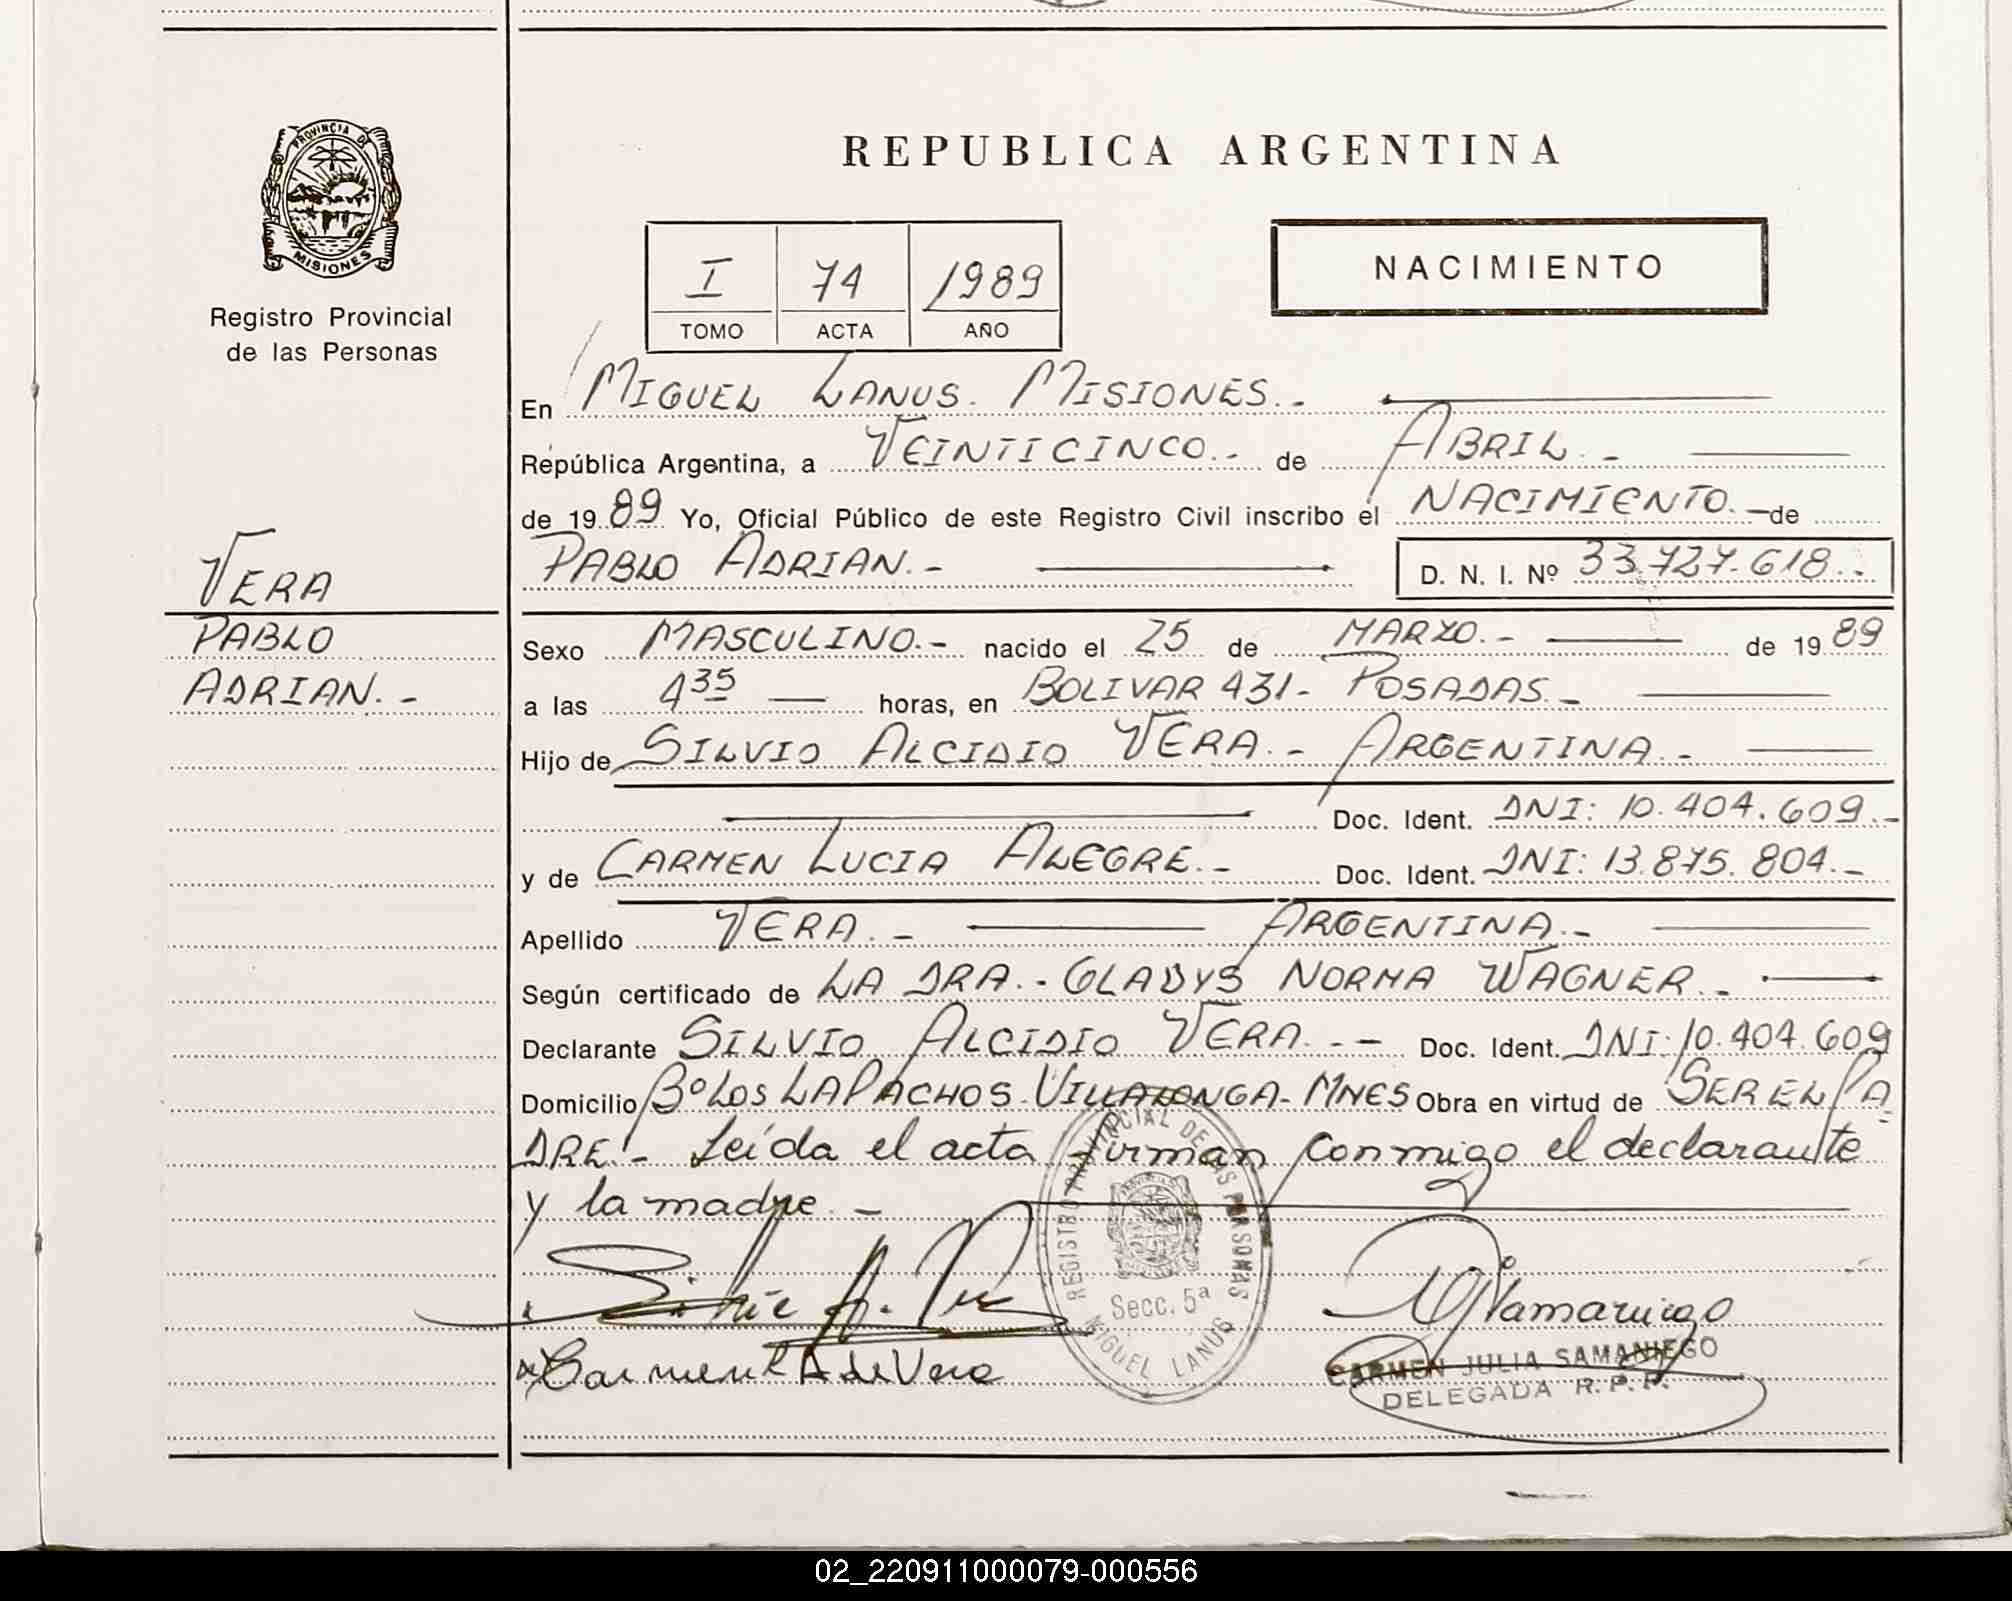 PROVINCIA DE
MISIONES
Registro Provincial
de las Personas
VERA
PABLO
ADRIAN.-
REPUBLICA ARGENTINA
I 74 1989
TOMO ACTA AÑO
NACIMIENTO
En MIGUEL LANUS. MISIONES.-
República Argentina, a VEINTICINCO.- de ABRIL.-
de 1989 Yo, Oficial Público de este Registro Civil inscribo el NACIMIENTO.- de
PABLO ADRIAN.- D. N. I. Nº 33.727.618.-
Sexo MASCULINO.- nacido el 25 de MARZO.- de 1989
a las 4 35 horas, en BOLIVAR 431- POSADAS.-
Hijo de SILVIO ALCIDIO VERA.- ARGENTINA.-
Doc. Ident. DNI: 10.404.609.-
y de CARMEN LUCIA ALEGRE.- Doc. Ident. DNI: 13.875.804.-
Apellido VERA.- ARGENTINA.-
Según certificado de LA DRA.- GLADYS NORMA WAGNER.-
Declarante SILVIO ALCIDIO VERA.-- Doc. Ident. DNI: 10.404.609
Domicilio Bº LOS LAPACHOS-VILLALONGA-MNES Obra en virtud de SER EL PA
DRE.- Leída el acta firman conmigo el declarante
y la madre.-
REGISTRO PROVINCIAL DE LAS PERSONAS
Secc. 5ª
MIGUEL LANUS
Silvio A. Vera
Carmen L A de Vera
CARMEN JULIA SAMANIEGO
DELEGADA R. P. P.
02_220911000079-000556